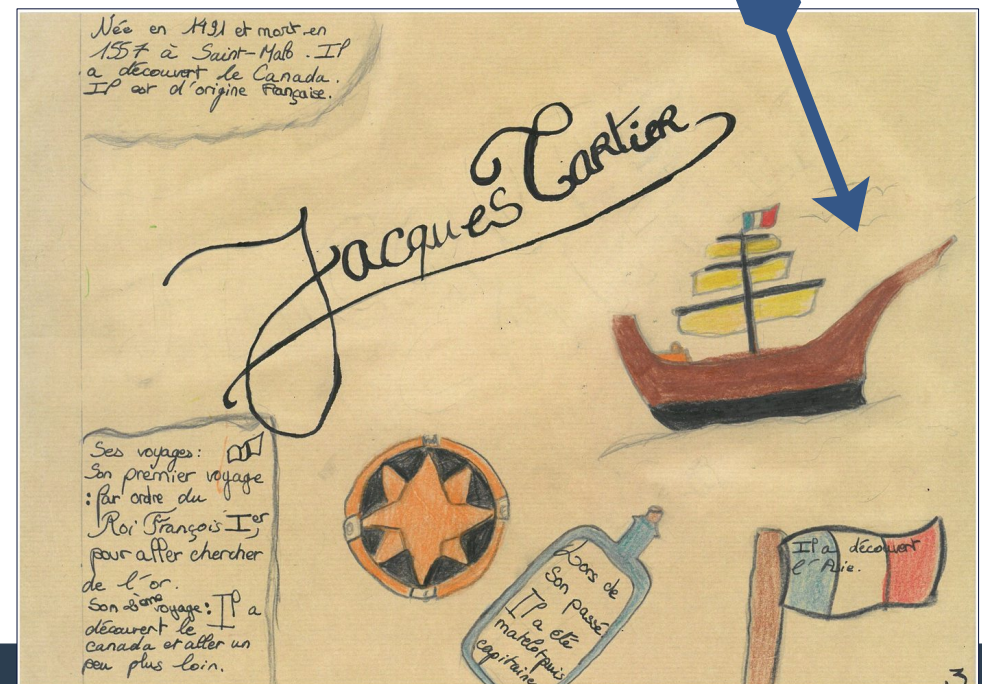 Née en 1491 et mort en
1557 à Saint-Malo. Il
a découvert le Canada.
Il est d'origine Française.
Jacques Cartier
Ses voyages:
Son premier voyage
: Par ordre du
Roi François Ier
pour aller chercher
de l'or.
Son 2ème voyage: Il a
découvert le
canada et aller un
peu plus loin.
Lors de
son passé
Il a été
matelot puis
capitaine
Il a découvert
l'Asie.
3